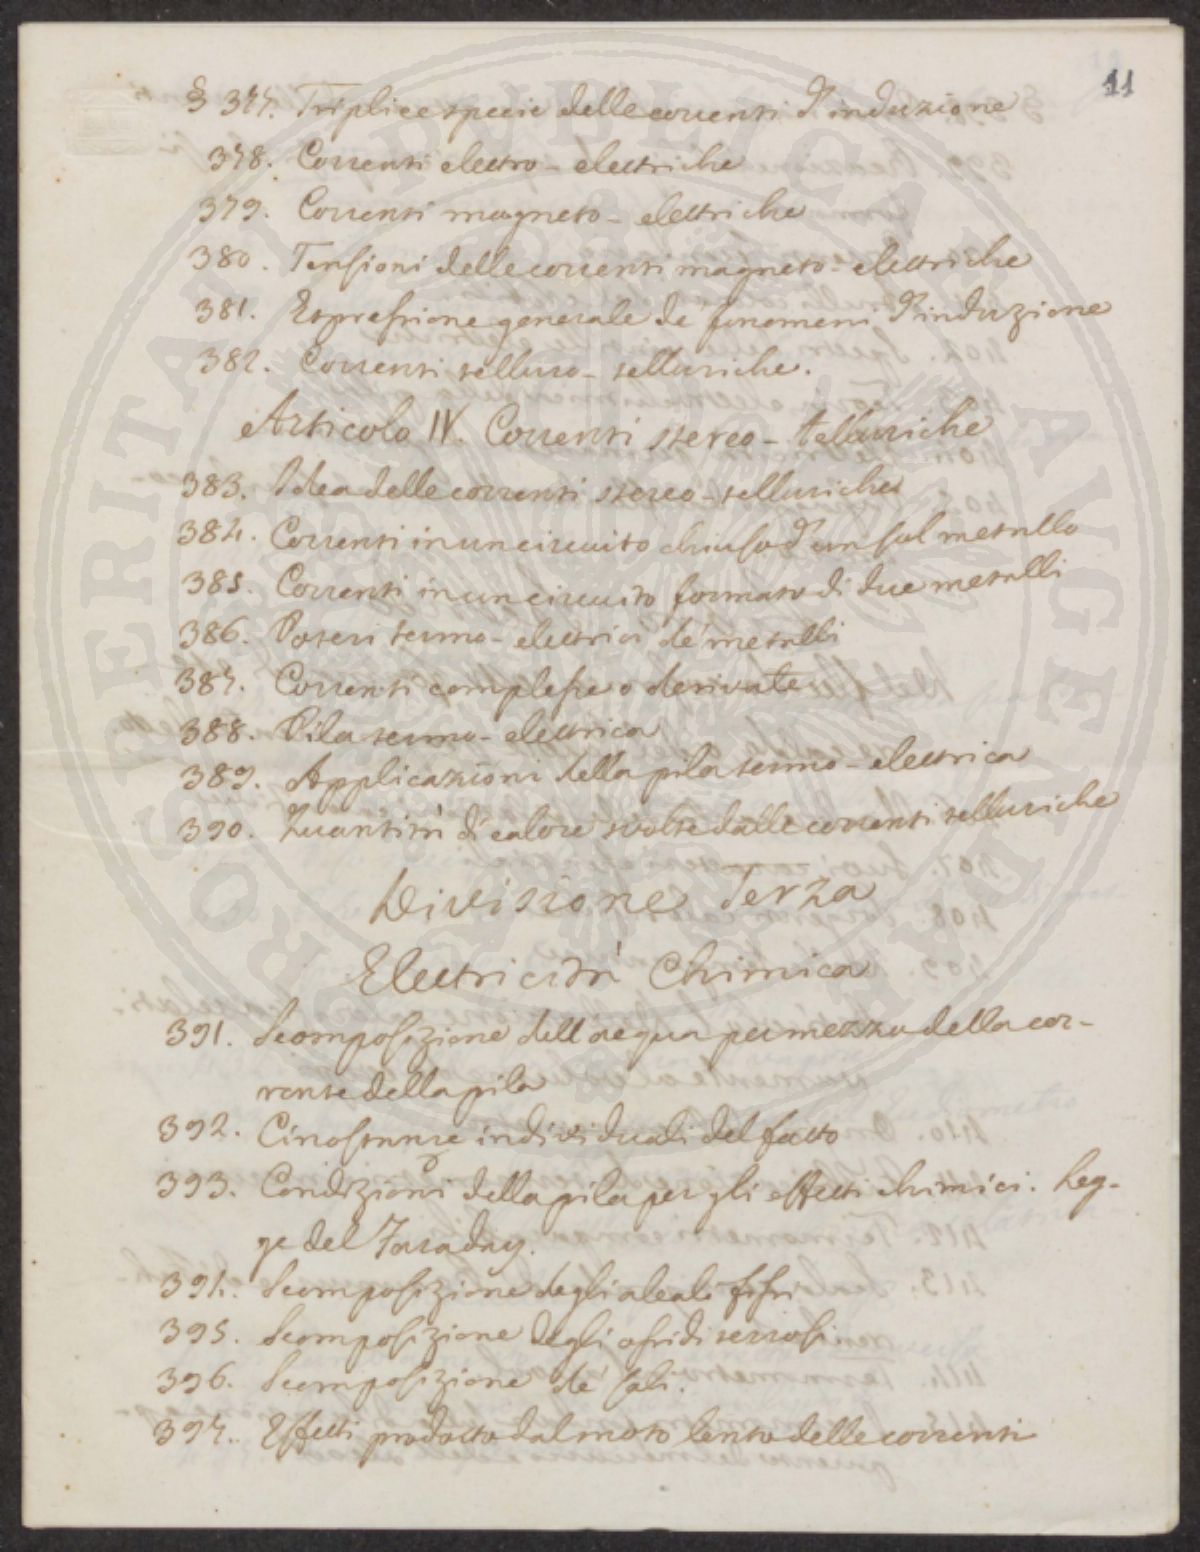 11
§ 377. Triplice specie delle correnti d'induzione
378. Correnti elettro-elettriche
379. Correnti magneto-elettriche
380. Tensioni delle correnti magneto-elettriche
381. Espressione generale de' fenomeni d'induzione
382. Correnti telluro-telluriche.
Articolo IV. Correnti stereo-telluriche
383. Idea delle correnti stereo-telluriche
384. Correnti in un circuito chiuso d'un sol metallo
385. Correnti in un circuito formato di due metalli
386. Poteri termo-elettrici de' metalli
387. Correnti complesse o derivate
388. Pila termo-elettrica
389. Applicazioni della pila termo-elettrica
390. Quantità di calore svolte dalle correnti telluriche
Divisione Terza
Elettricità Chimica
391. Scomposizione dell'acqua per mezzo della cor-
rente della pila
392. Circostanze individuali del fatto
393. Condizioni della pila per gli effetti chimici. Leg-
ge del Faraday.
394. Scomposizione degli alcali fissi
395. Scomposizione degli ossidi terrosi
396. Scomposizione de' sali.
397. Effetti prodotto dal moto lento delle correnti
PUBLICAE PROSPERITATI AUGENDAE